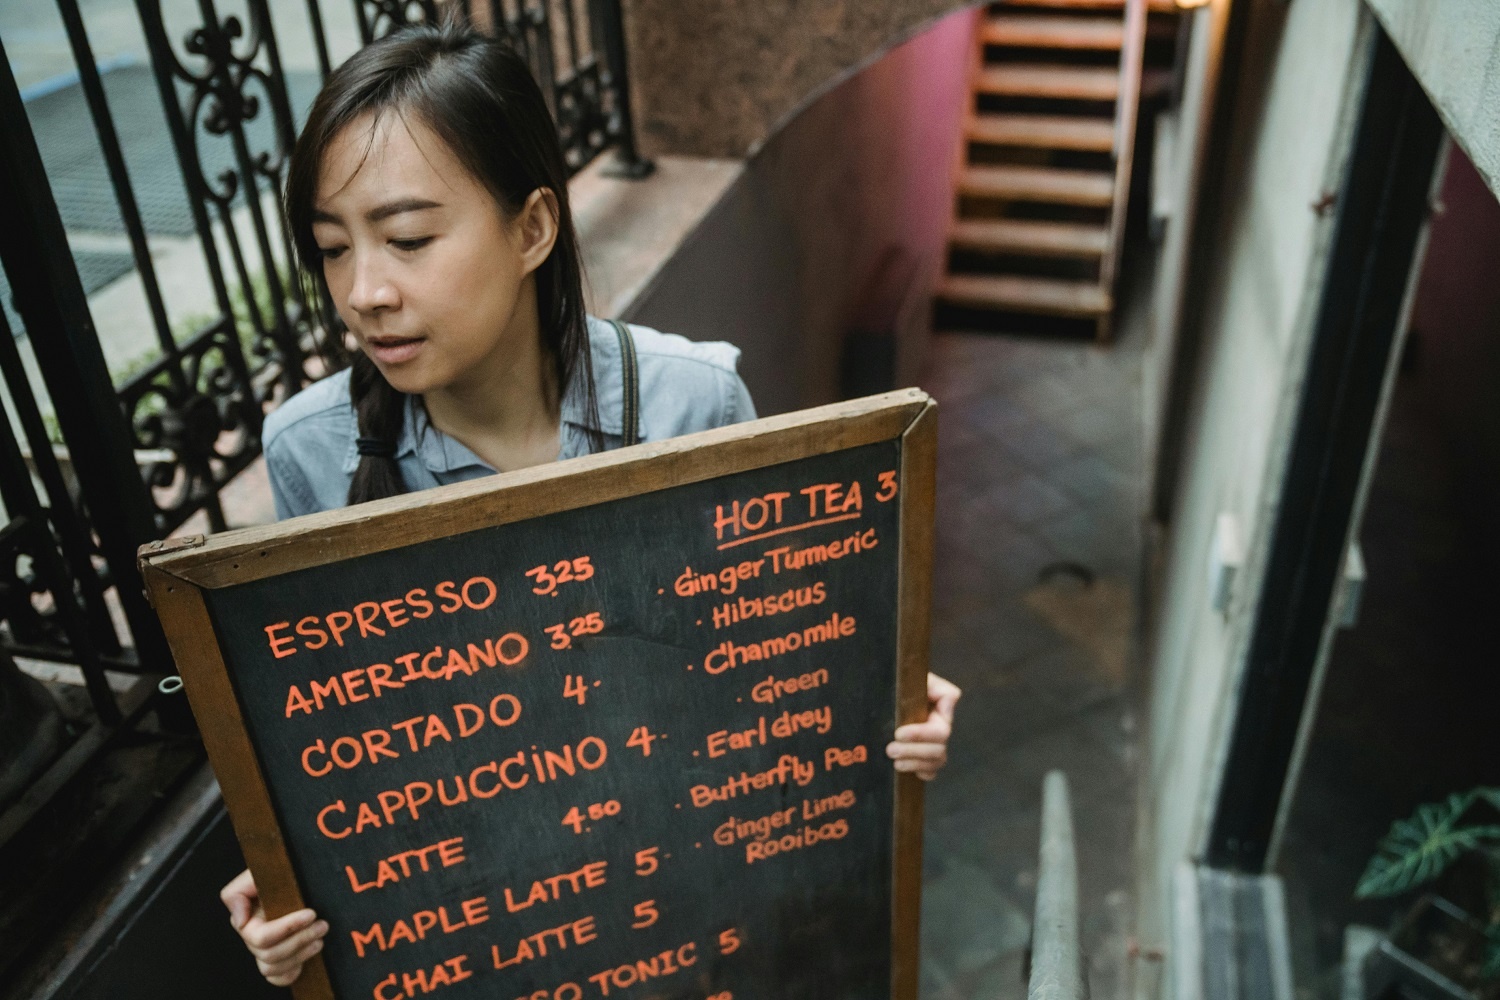 ESPRESSO 3.25
AMERICANO 3.25
CORTADO 4.
CAPPUCCiNO 4.
LATTE 4.50
MAPLE LATTE 5.
CHAI LATTE 5
TONIC 5
HOT TEA 3
· Ginger Tumeric
· Hibiscus
· Chamomile
· Green
· Earl Grey
· Butterfly Pea
· Ginger Lime
Rooibos